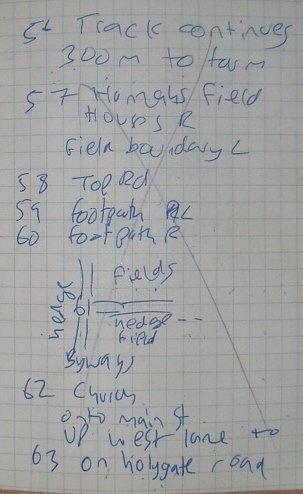 56 Track continues
300m to farm
57 Field
Houses R
Field boundary L
58 Top Rd
59 footpath L
60 footpath R
fields
hedge
61
hedge
field
Byways
62 Church
onto main st
UP West lane to
63 on holygate road